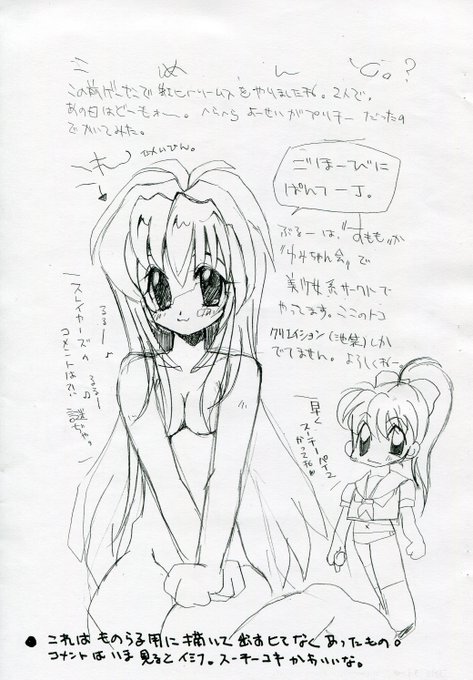 ごめんじゃ。?
この前ゲーセンで虹ヒドリームスをやりましたね。2人で。
あの日はどーもォー。へらへら よーせいがプリチー だったの
でかいてみた。
ごほーびに
ぱんてー丁。
ぶるーは、"すもも"か
"ゆみちゃん会"で
美少女系サークトで
やってます。ここのトコ
クリエイション(池袋)しか
でてません。よろしくねー
スレイヤーズへ
コメントは?!。謎ぢゃっ
るるー♪
るるー♪
早く
スーチーパイ2
かってね
●これはものらる用に描いて出すヒてなくあったもの。
コメントはいま見るとイミフ。スーチーコキかわいいな。